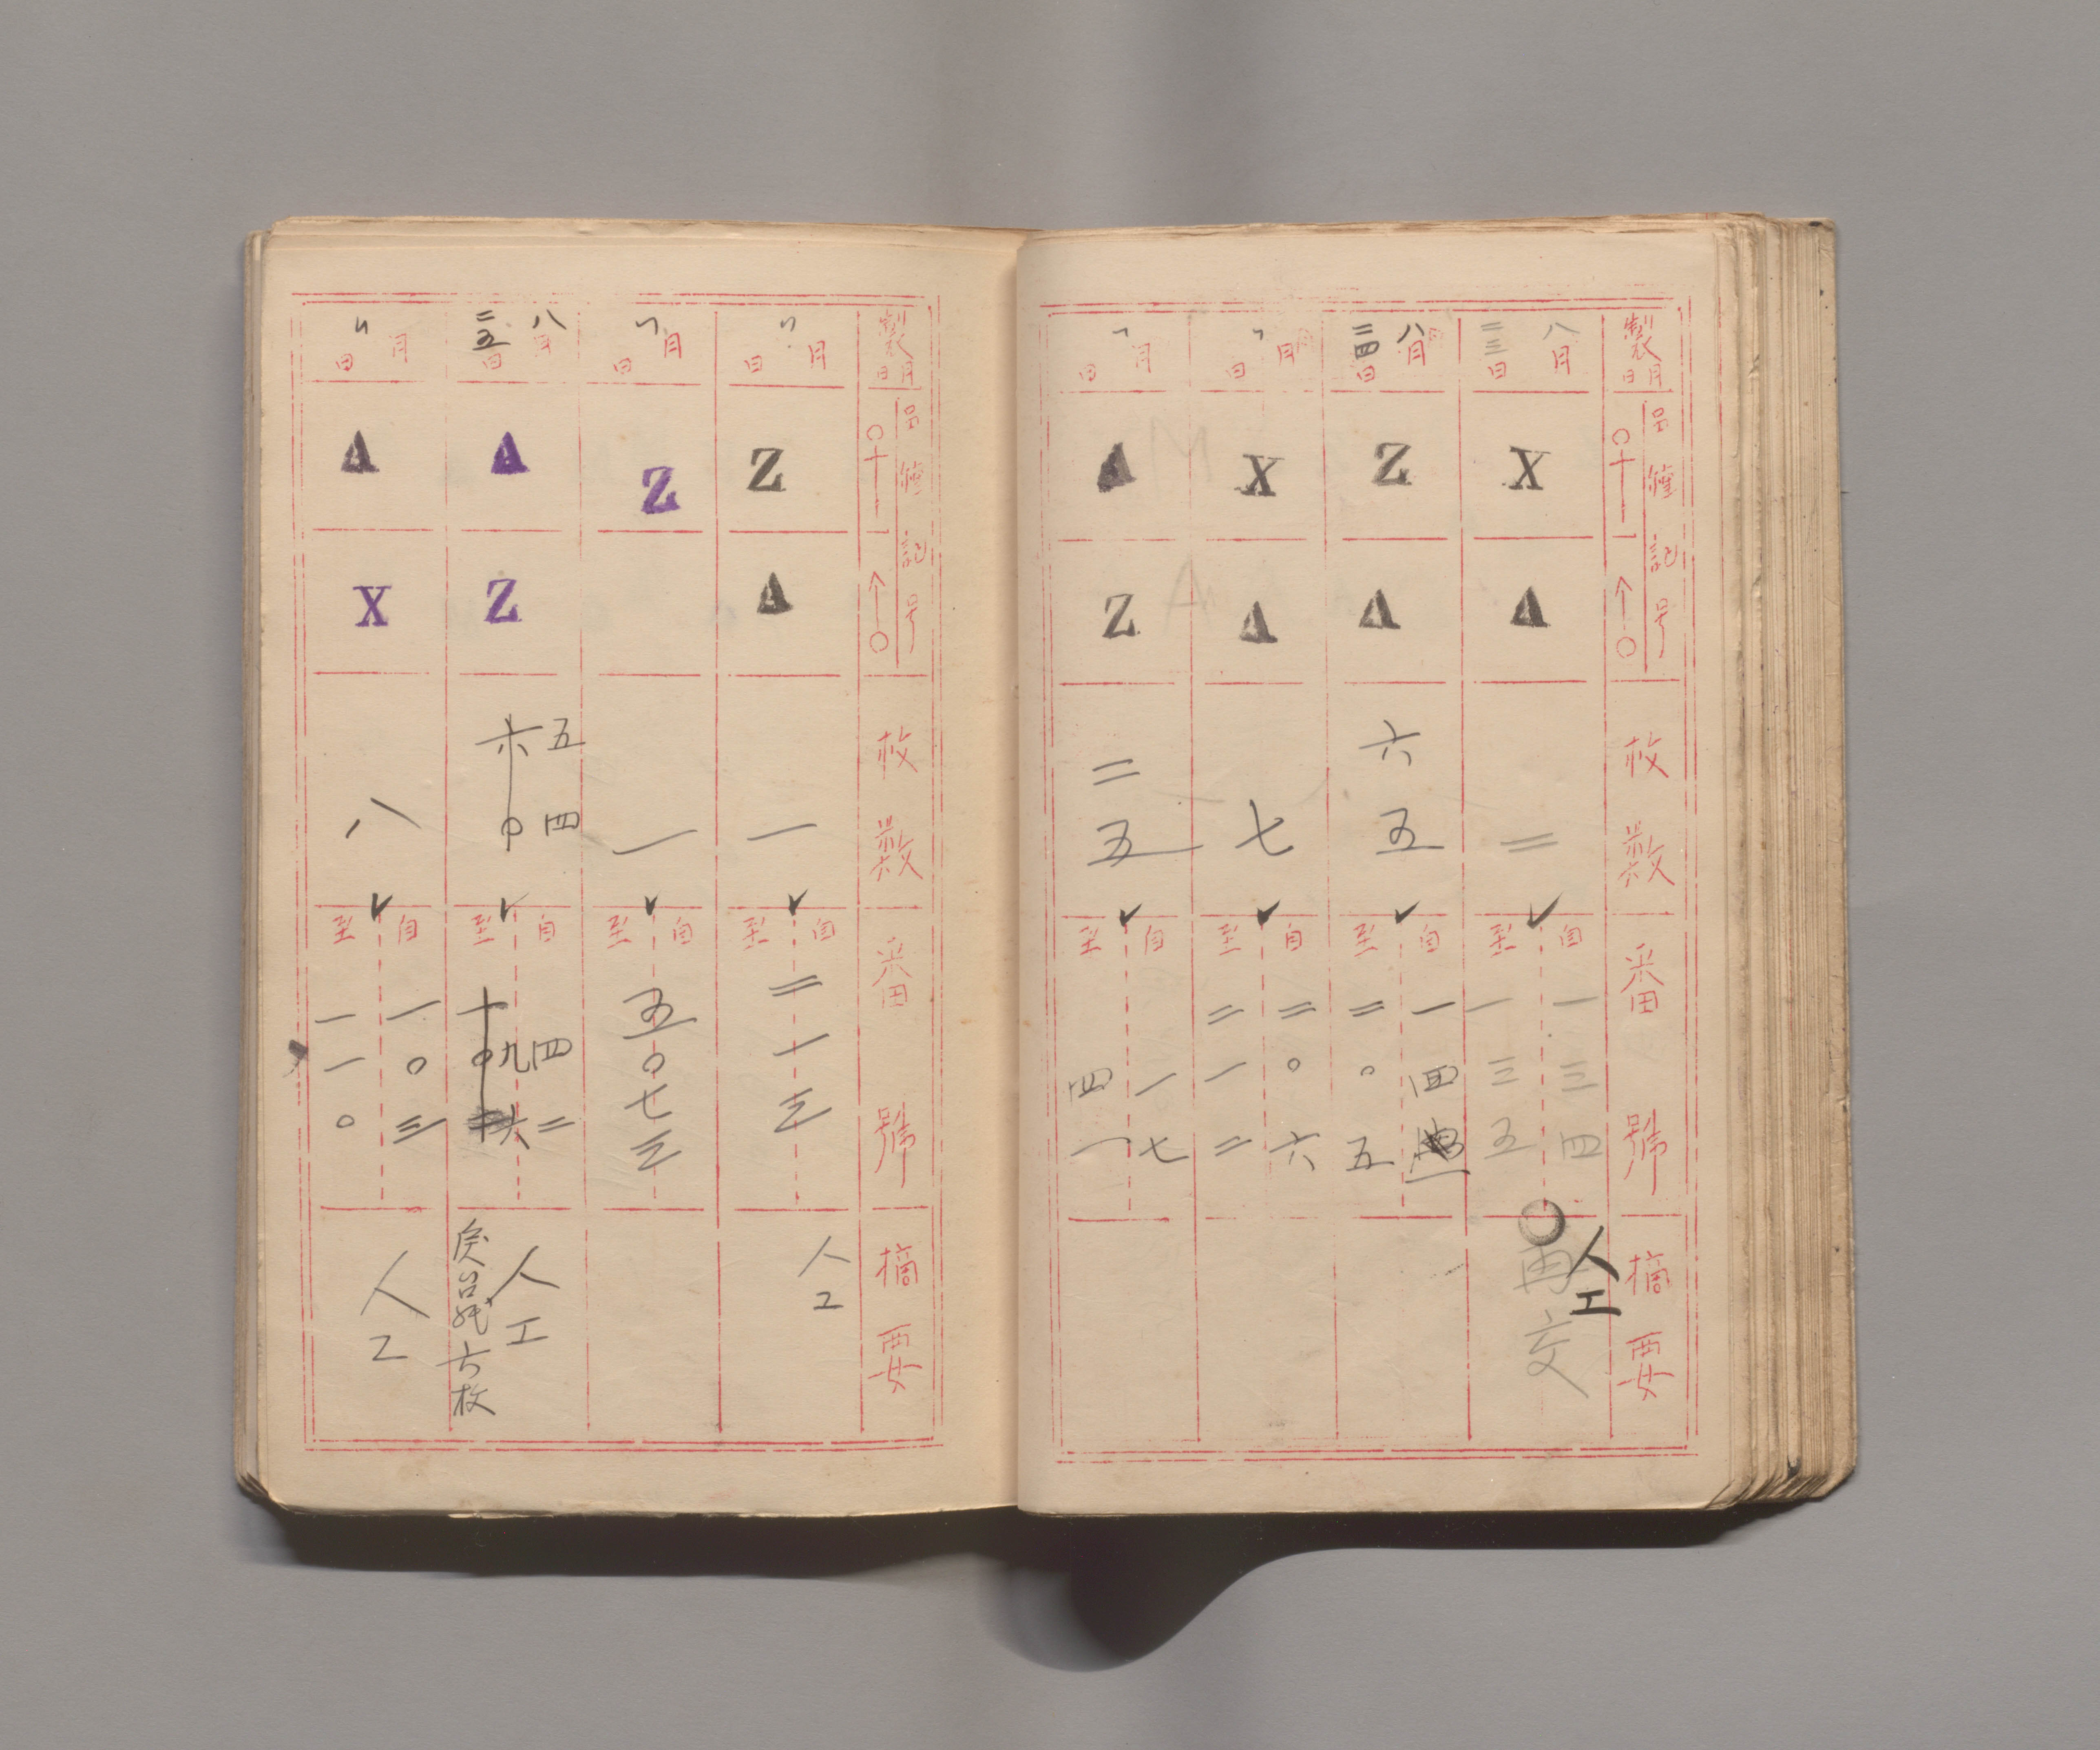 製月日
品種記号
枚数
番號
摘要
八月二三日
X
A
二
自一三四
至一三五
再交
人工
八月二四日
Z
A
六五
自一四
至二〇五
〃月日
X
A
七
自二〇六
至二一二
〃月日
A
Z
二五
自一七
至四一
製月日
品種記号
枚数
番號
摘要
〃月日
Z
A
一
自至
二一三
人工
〃月日
Z
一
自至
五〇七三
八月二五日
A
Z
五四
六〇
自四二
至九六
人工
六枚
〃月日
A
X
八
自一〇三
至一一〇
人工